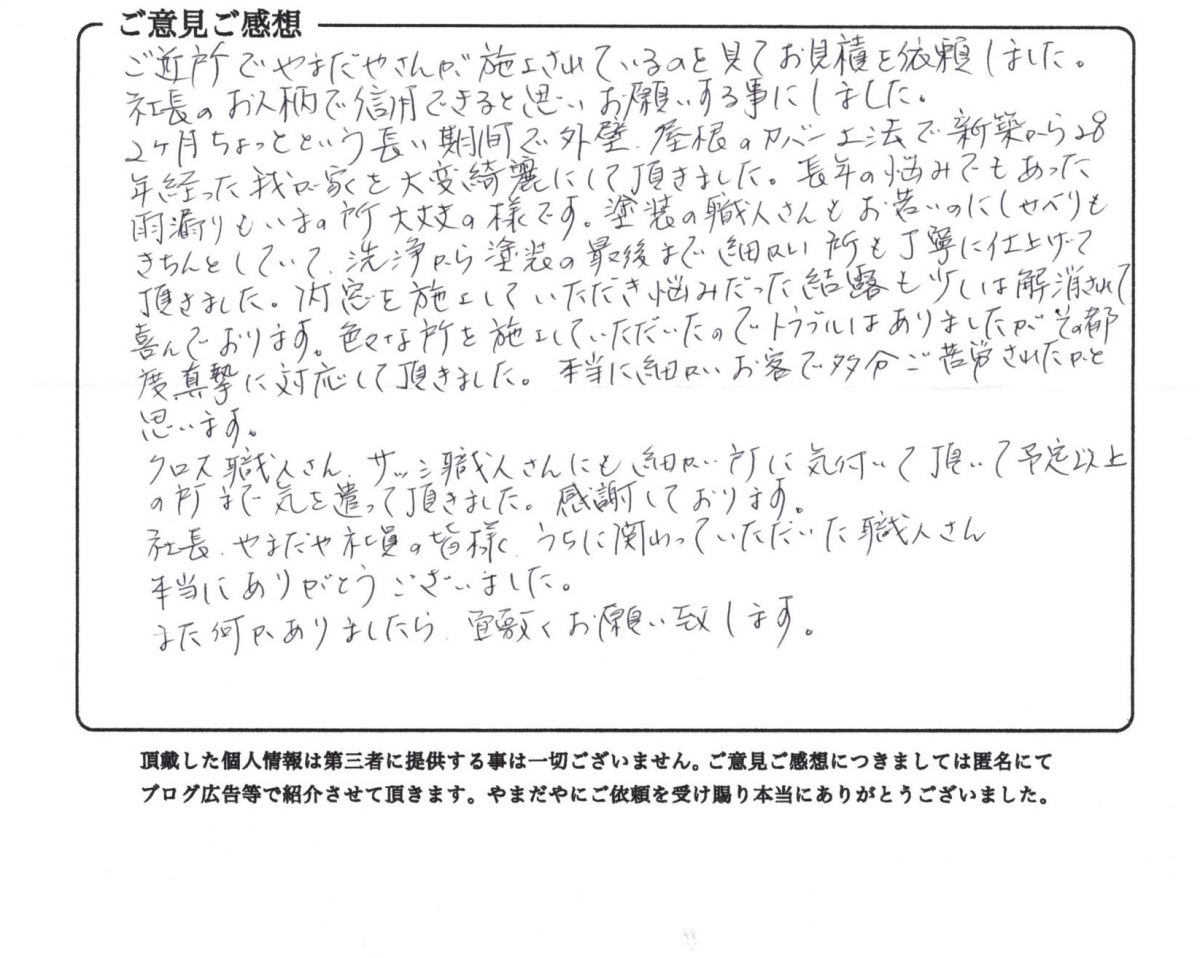 ご意見ご感想
ご近所でやまだやさんが施工されているのを見てお見積を依頼しました。
社長のお人柄で信用できると思いお願いする事にしました。
2ヶ月ちょっとという長い期間で外壁、屋根のカバー工法で新築から28
年経った我が家を大変綺麗にして頂きました。長年の悩みでもあった
雨漏りもいまの所大丈夫の様です。塗装の職人さんもお若いのにしゃべりも
きちんとしていて、洗浄から塗装の最後まで細かい所も丁寧に仕上げて
頂きました。内窓を施工していただき悩みだった結露も少しは解消されて
喜んでおります。色々な所を施工していただいたのでトラブルはありましたがその都
度真摯に対応して頂きました。本当に細かいお客で多分ご苦労されたかと
思います。
クロス職人さん、サッシ職人さんにも細かい所に気付いて頂いて予定以上
の所まで気を遣って頂きました。感謝しております。
社長、やまだや社員の皆様、うちに関わっていただいた職人さん
本当にありがとうございました。
また何かありましたら、宜敷くお願い致します。
頂戴した個人情報は第三者に提供する事は一切ございません。ご意見ご感想につきましては匿名にて
ブログ広告等で紹介させて頂きます。やまだやにご依頼を受け賜り本当にありがとうございました。